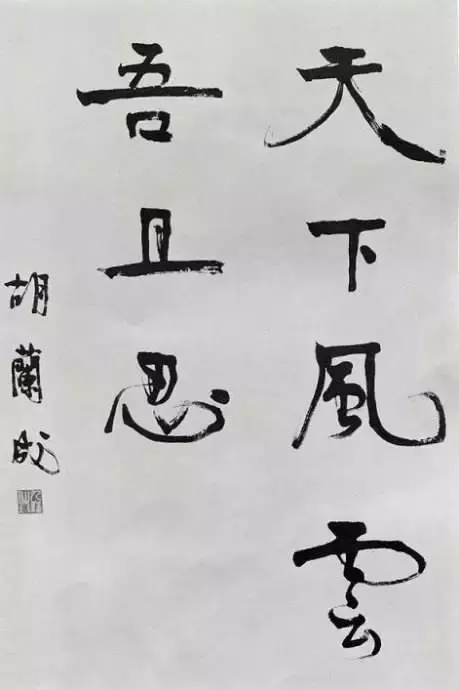 天下風雲
吾且思
胡蘭成